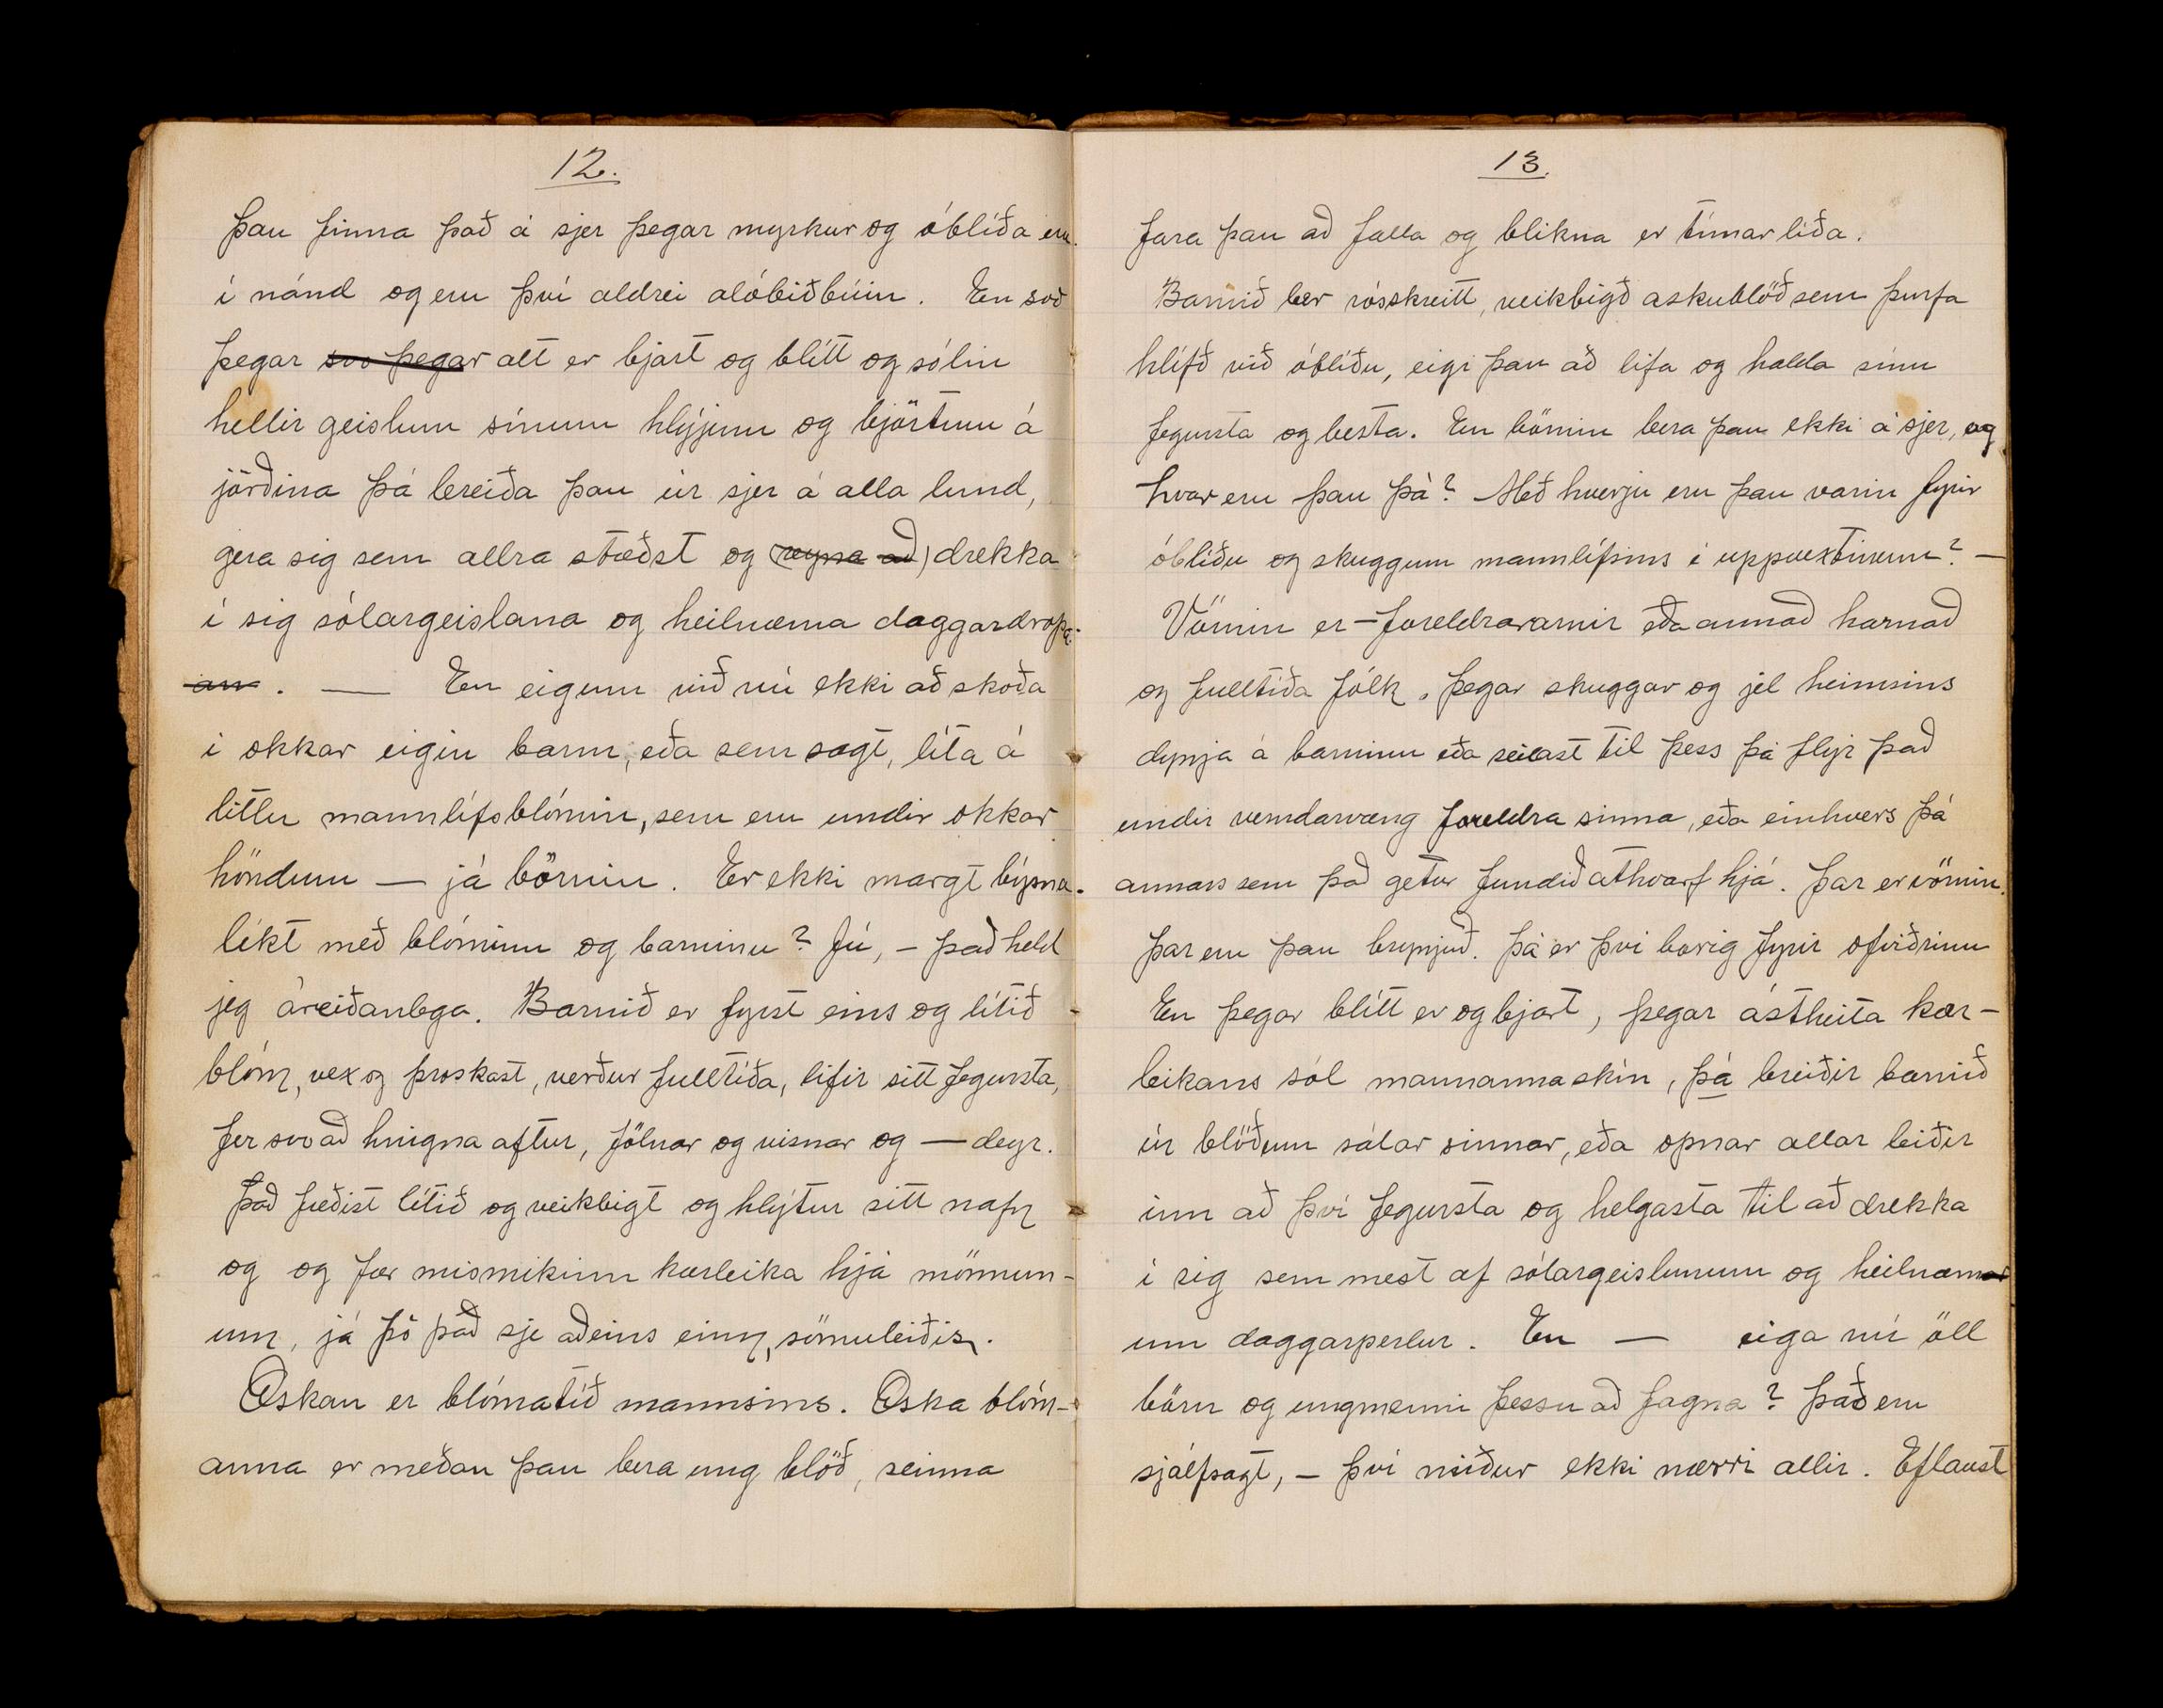 12.
þau finna það á sjer þegar myrkur og óblíða eru
í nánd og eru því aldrei alóbiðbúin. En svo
þegar svo þegar alt er bjart og blítt og sólin
hellir geislum sínum hlýjum og björtum á
jörðina þá breiða þau úr sjer á alla lund,
gera sig sem allra stæðst og (reyna að) drekka
í sig sólargeislana og heilnæma daggardropa-
an. — En eigum við nú ekki að skoða
í okkar eigin barm, eða sem sagt, líta á
littlu mannlífsblómin, sem eru undir okkar
höndum — já börnin. Er ekki margt býsna-
líkt með blóminu og barninu? Jú, - það held
jeg áreiðanlega. Barnið er fyrst eins og lítið
blóm, vex og þroskast, verður fulltíða, lifir sitt fegursta,
fer svo að hnigna aftur, fölnar og visnar og — deyr.
Það fæðist lítið og veikbigt og hlýtur sitt nafn
og og fær mismikinn kærleika hjá mönnun-
um, já þó það sje aðeins einn, sömuleiðis.
Æskan er blómatíð mannsins. Æska blóm-
anna er meðan þau bera ung blöð, seinna
13.
fara þau að falla og blikna er tímar líða.
Barnið ber rósskreitt, veikbigð æskublöð sem þurfa
hlífð við óblíðu, eigi þau að lifa og halda sínu
fegursta og besta. En börnin bera þau ekki á sjer, og
hvar eru þau þá? Með hverju eru þau varin fyrir
óblíðu og skuggum mannlífsins í uppvextinum? —
Vörnin er - foreldrararnir eða annað harnað
og fulltíða fólk. Þegar skuggar og jel heimsins
dynja á barninu eða seilast til þess þá flýr það
undir verndarvæng foreldra sinna, eða einhvers þá
annars sem það getur fundið athvarf hjá. Þar er vörnin.
Þar eru þau brynjuð. Þá er því borig fyrir ofviðrinu
En þegar blítt er og bjart, þegar ástheita kær-
leikans sól mannanna skín, þá breiðir barnið
úr blöðum sálar sinnar, eða opnar allar leiðir
inn að því fegursta og helgasta til að drekka
í sig sem mest af sólargeislunum og heilnæmar
um daggarperlur. En — eiga nú öll
börn og ungmenni þessu að fagna? Það eru
sjálfsagt, - því miður ekki nærri allir. Eflaust